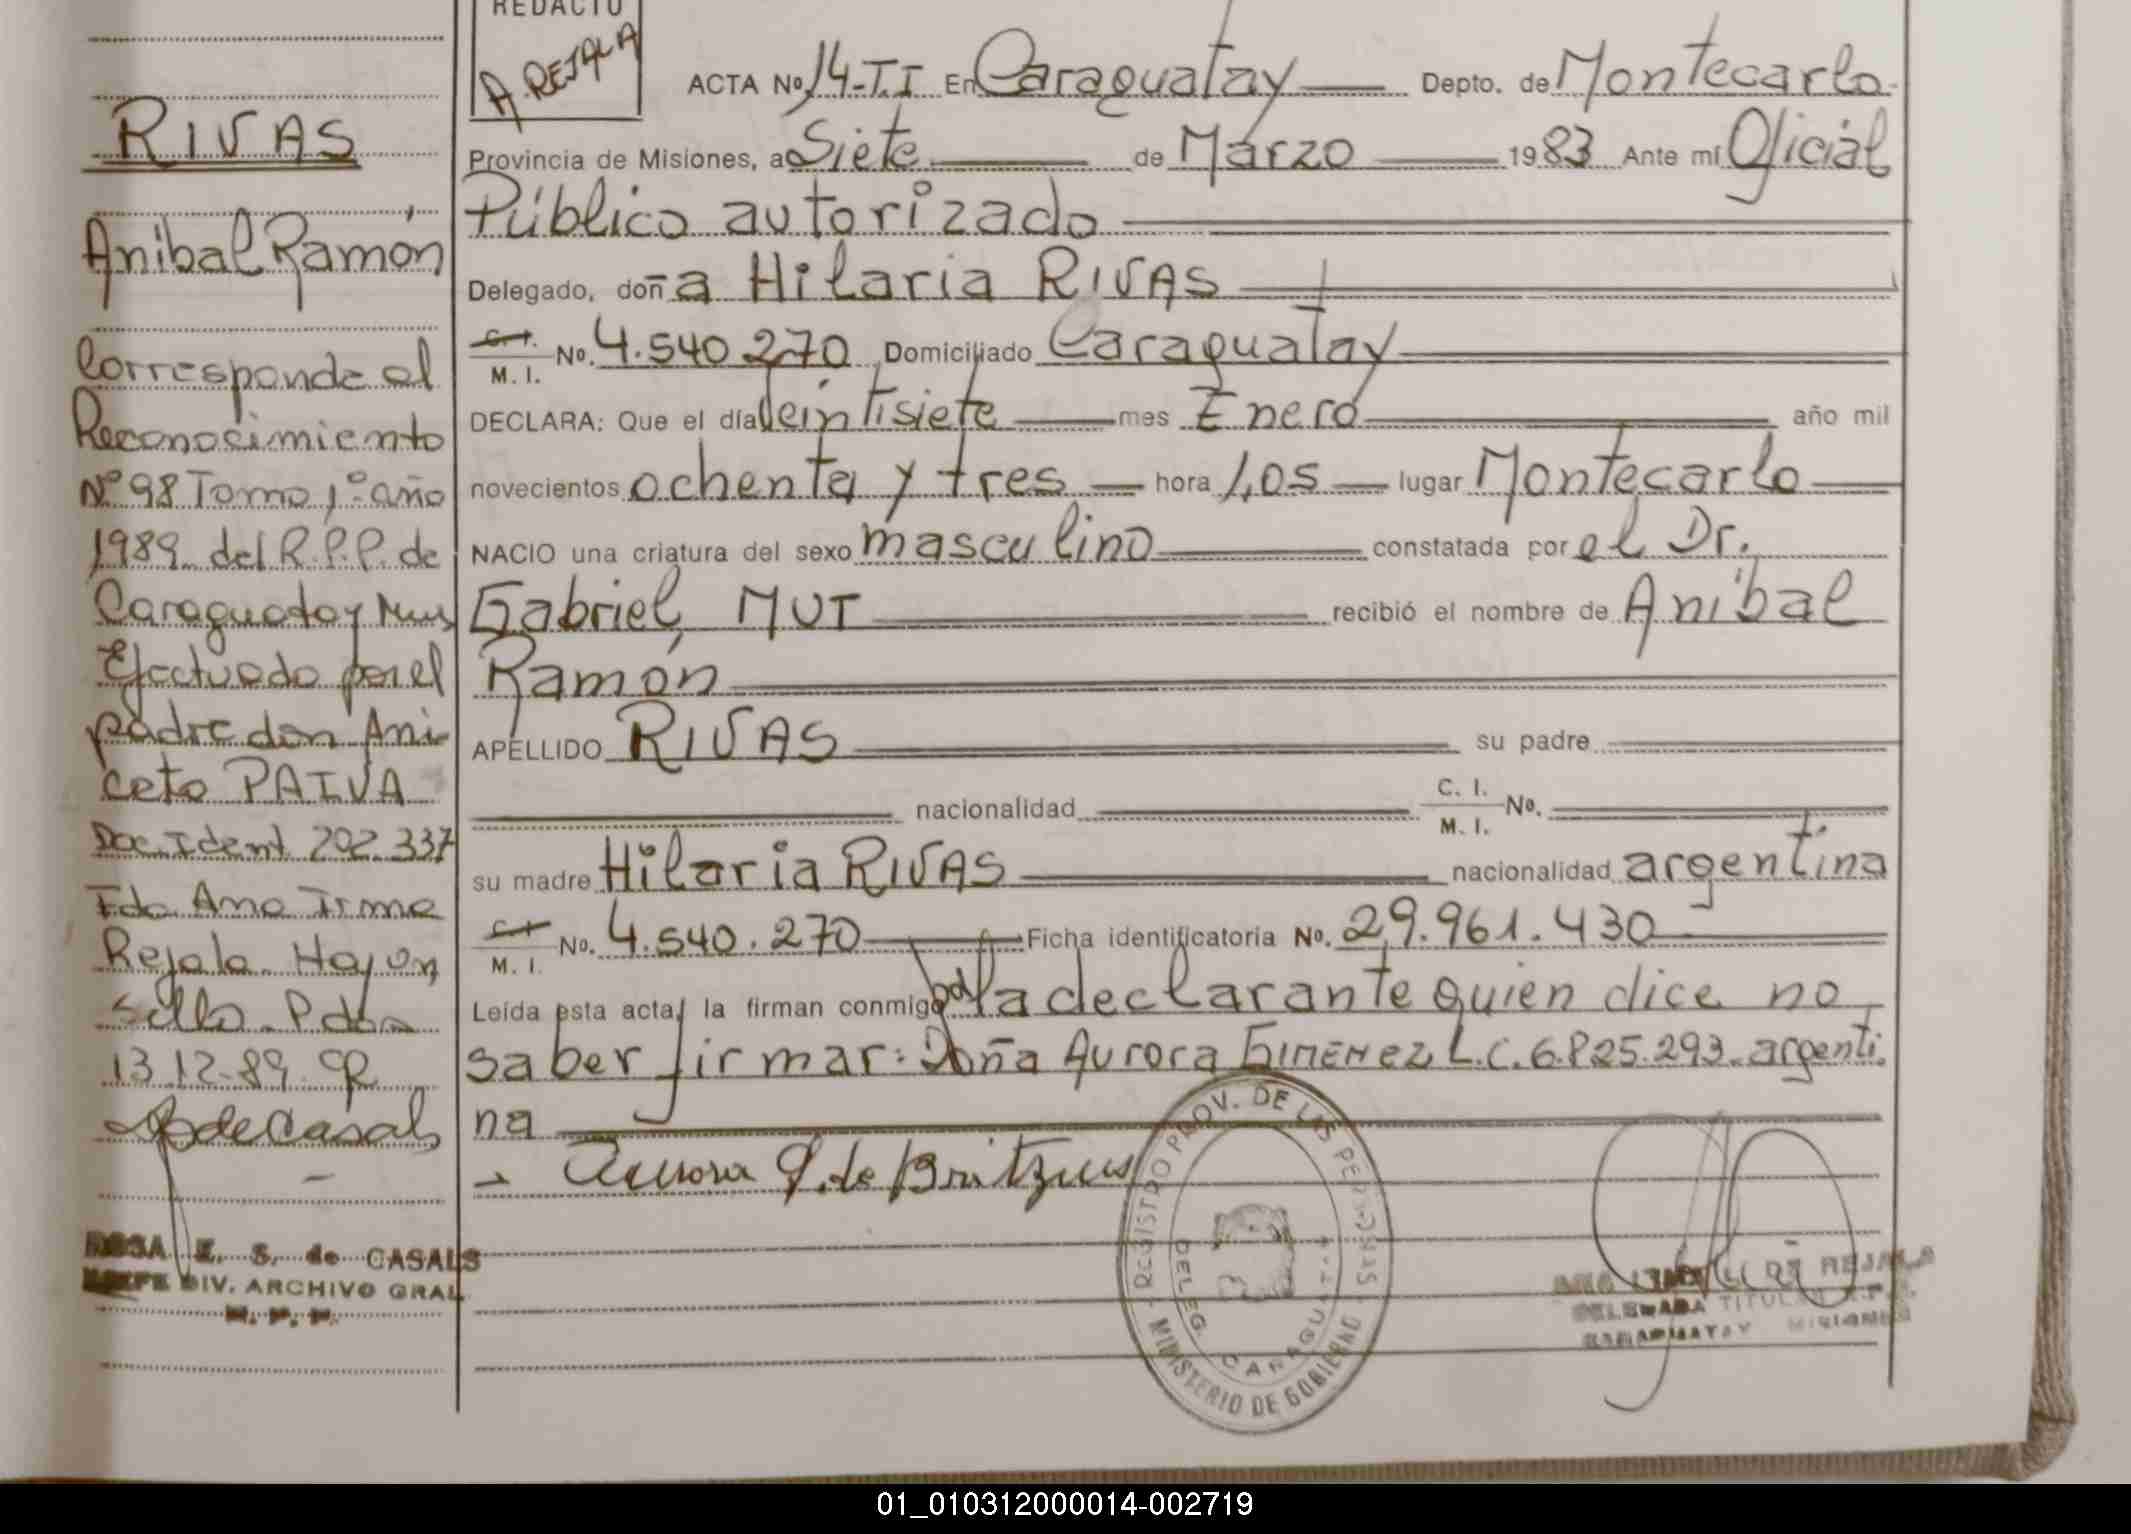 REDACTO
A. REJALA
RIVAS
Anibal Ramón
Corresponde al
Reconosimiento
Nº 98 Tomo 1º año
1989 del R.P.P. de
Caraguatay Mns
Efectuado por el
padre don Ani-
ceto PAIVA
Doc. Ident 202.337
Fdo Ana Irma
Rejala. Hay un
sello. Pdas
13.12.89.
ROSA E. S. de CASALS
DIV. ARCHIVO GRAL
ACTA Nº 14-T.I En Caraguatay Depto. de Montecarlo
Provincia de Misiones, a Siete de Marzo 1983 Ante mí Oficial
Público autorizado
Delegado, doña Hilaria RIVAS
C. I. M. I. Nº. 4.540.270 Domiciliado Caraguatay
DECLARA: Que el día Veintisiete mes Enero año mil
novecientos ochenta y tres hora 1,05 lugar Montecarlo
NACIO una criatura del sexo masculino constatada por el Dr.
Gabriel MUT recibió el nombre de Anibal
Ramón
APELLIDO RIVAS su padre
nacionalidad C. I. M. I. Nº.
su madre Hilaria RIVAS nacionalidad argentina
C. I. M. I. Nº. 4.540.270 Ficha identificatoria Nº. 29.961.430
Leída esta acta, la firman conmigo por la declarante quien dice no
saber firmar: Doña Aurora GIMENEZ L.C. 6.825.293. argenti
na
Aurora G. de Britzius
REGISTRO PROV. DE LAS PERSONAS
DELEG. CARAGUATAY
MINISTERIO DE GOBIERNO
REJALA
DELEGADA TITULAR
CARAGUATAY MISIONES
01_010312000014-002719